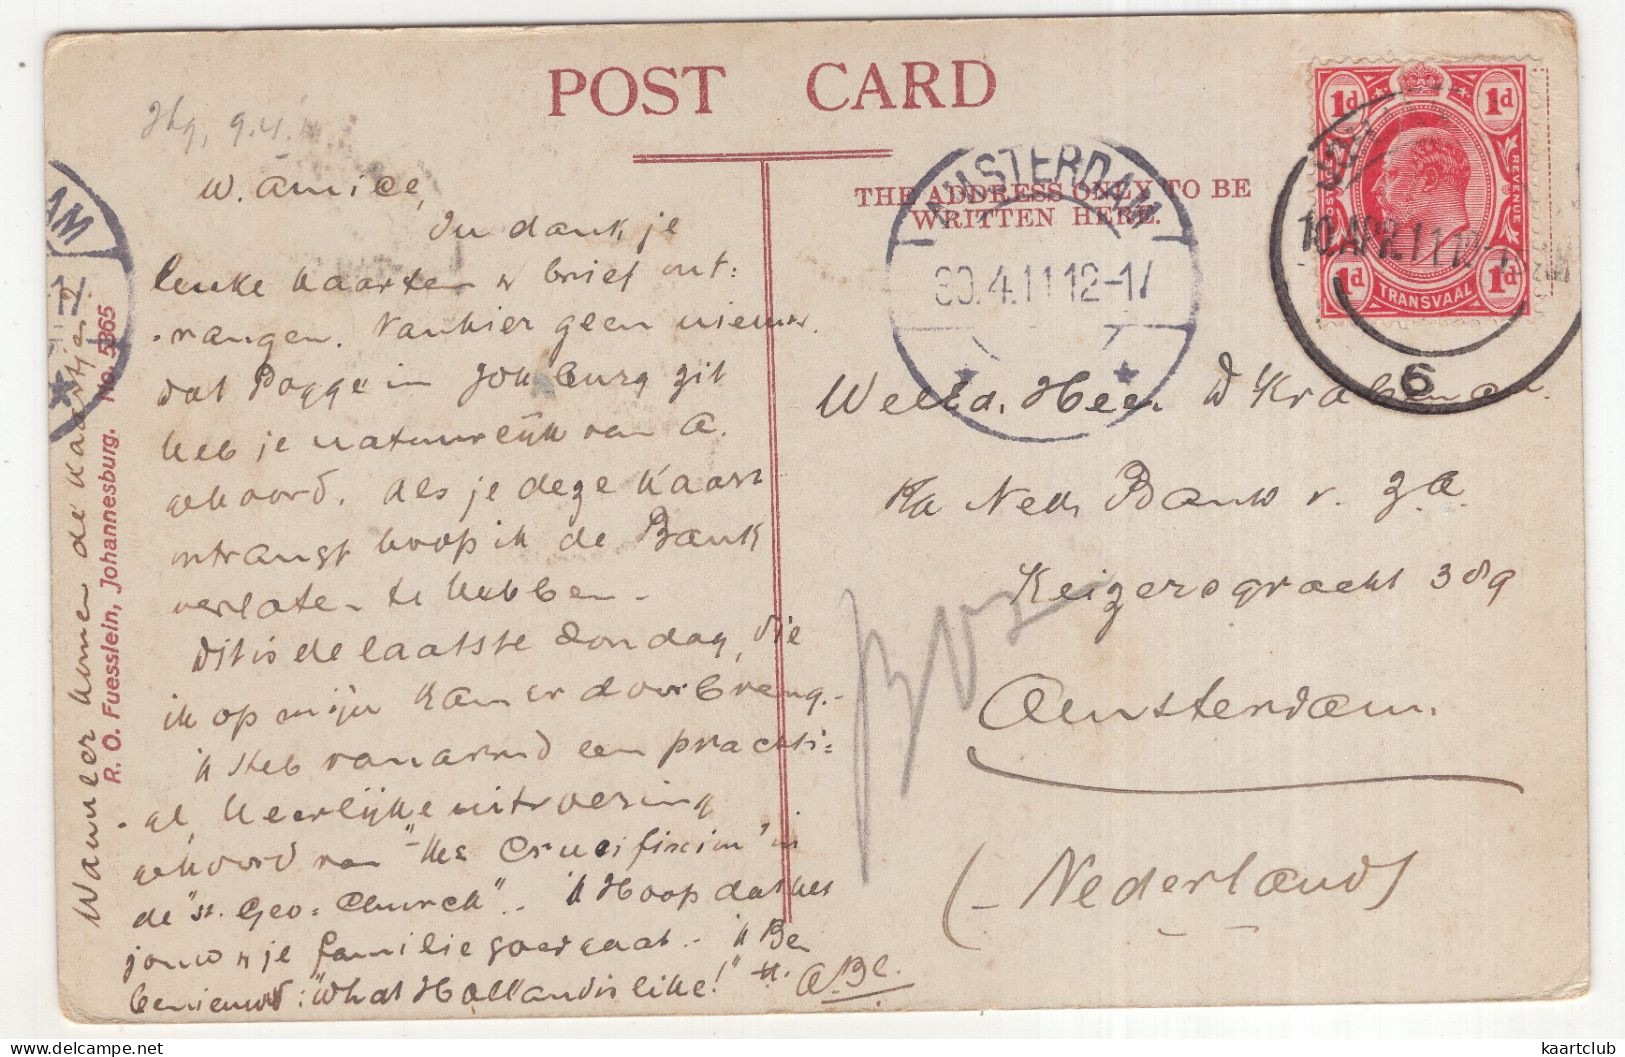 POST CARD
THE ADDRESS ONLY TO BE
WRITTEN HERE.
Jhg, 9.4.11
W. Amice,
Nu dank je
leuke kaarten & brief ont:
vangen. Van hier geen nieuws.
dat Pogge in Joh'burg zit
heb je natuurlijk van A.
gehoord. Als je deze kaart
ontvangt hoop ik de Bank
verlaten te hebben.
Dit is de laatste Zondag, die
ik op mijn kamer doorbreng.
'k Heb vanavond een prachti=
ge, heerlijke uitvoering
gehoord van "the Crucifixion" in
de "St. Geo: Church". 'k Hoop dat het
jou en je familie goed gaat. 'k Ben
benieuwd: "What Holland is like!" tt. A.Be.
Wanneer komen de kaartjes?
R. O. Fuesslein, Johannesburg. No. 5365
AM
AMSTERDAM
30.4.11 12-1
1d 1d
POSTAGE REVENUE
1d TRANSVAAL 1d
10 APR 11
6
WelEd. Heer
p/a Ned. Bank v. Z.A.
Keizersgracht 389
Amsterdam.
(Nederland)